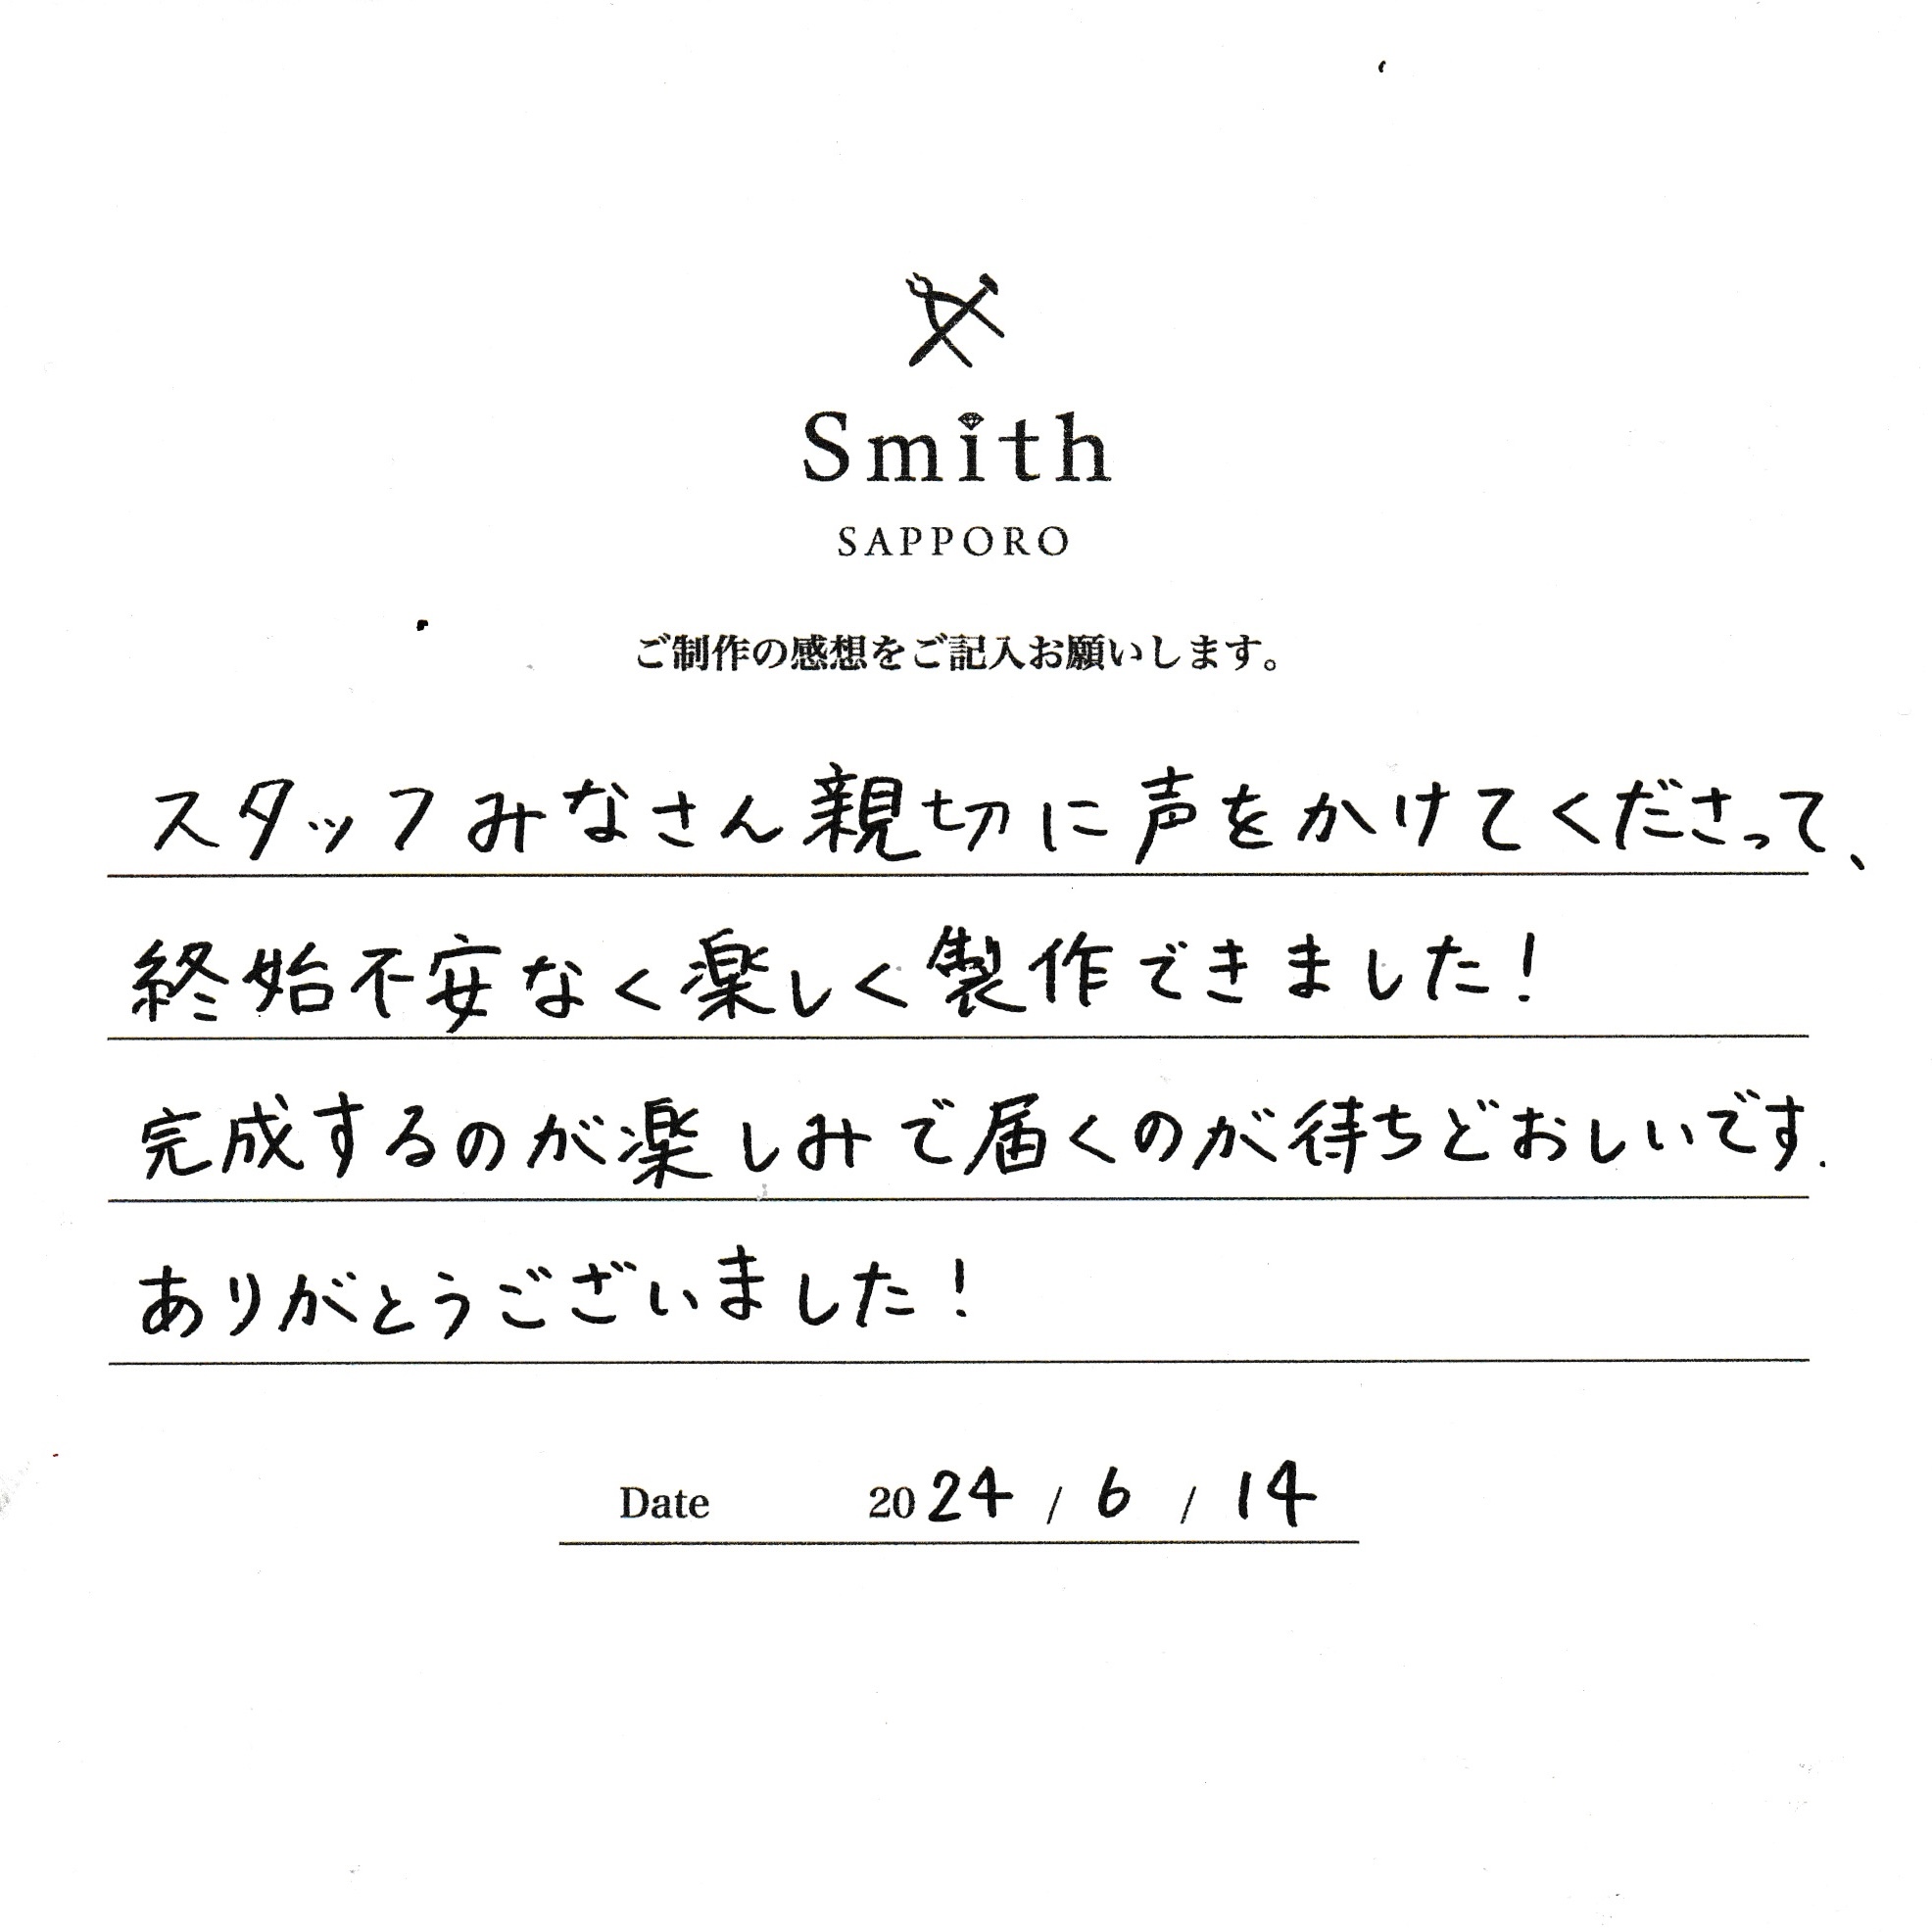 Smith
SAPPORO
ご制作の感想をご記入お願いします。
スタッフみなさん親切に声をかけてくださって、
終始不安なく楽しく製作できました!
完成するのが楽しみで届くのが待ちどおしいです.
ありがとうございました!
Date 2024 / 6 / 14